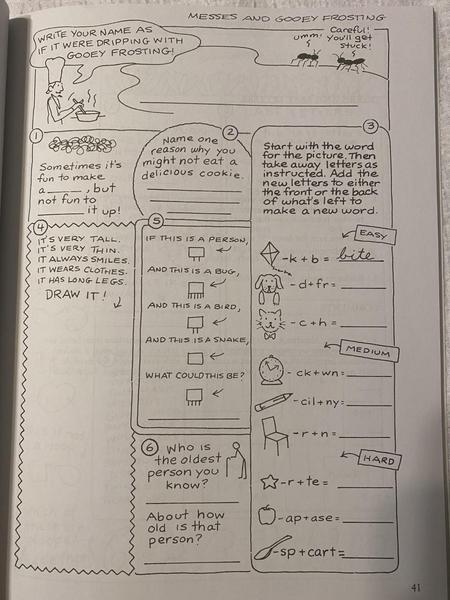 MESSES AND GOOEY FROSTING
WRITE YOUR NAME AS
IF IT WERE DRIPPING WITH
GOOEY FROSTING!
umm!
Careful!
you'll get
stuck!
1
Sometimes it's
fun to make
a ____, but
not fun to
____ it up!
2
Name one
reason why you
might not eat a
delicious cookie.
3
Start with the word
for the picture. Then
take away letters as
instructed. Add the
new letters to either
the front or the back
of what's left to
make a new word.
EASY
-k+b= bite
-d+fr=
-c+h=
MEDIUM
-ck+wn=
-cil+ny=
-r+n=
HARD
-r+te=
-ap+ase=
-sp+cart=
4
IT'S VERY TALL.
IT'S VERY THIN.
IT ALWAYS SMILES.
IT WEARS CLOTHES.
IT HAS LONG LEGS.
DRAW IT!
5
IF THIS IS A PERSON,
AND THIS IS A BUG,
AND THIS IS A BIRD,
AND THIS IS A SNAKE,
WHAT COULD THIS BE?
6
Who is
the oldest
person you
know?
About how
old is that
person?
41